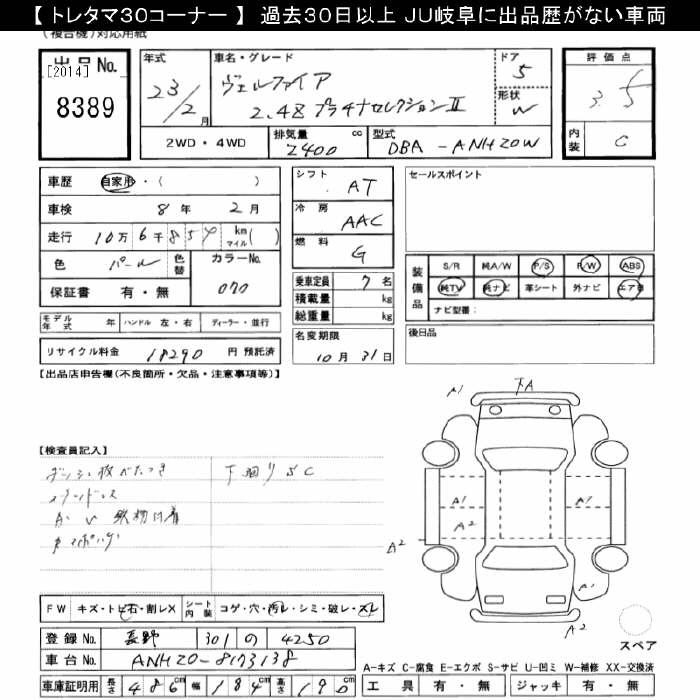 【 トレタマ30コーナー 】 過去30日以上 JU岐阜に出品歴がない車両
(複合機)対応用紙
出品No. [2014] 8389
年式 23/2月
車名・グレード ヴェルファイア 2.4Z プラチナセレクションⅡ
ドア 5
形状 W
評価点 3.5
内装 C
2WD・4WD
排気量 2400 cc
型式 DBA-ANH20W
車歴 自家用・( )
車検 8年 2月
走行 10万6千859 km マイル( )
色 パール 色替 カラーNo. 070
保証書 有・無
モデル年式 年 ハンドル 左・右 ディーラー・並行
リサイクル料金 18290 円 預託済
シフト AT
冷房 AAC
燃料 G
乗車定員 7名
積載量 kg
総重量 kg
名変期限 10月31日
セールスポイント
装備品 S/R 純A/W P/S P/W ABS
純TV 純ナビ 革シート 外ナビ エアB
ナビ型番:
後日品
【出品店申告欄(不良箇所・欠品・注意事項等)】
【検査員記入】
ダッシュ板べたつき 下廻りSC
A1 下A
A1 A1
A2
A2
A1
A2
スペア
FW キズ・トビ石・割レX シート内装 コゲ・穴・汚レ・シミ・破レ・スレ
登録No. 長野 301 の 4250
車台No. ANH20-8173138
車庫証明用 長さ 486cm 幅 184cm 高さ 190cm
A-キズ C-腐食 E-エクボ S-サビ U-凹ミ W-補修 XX-交換済
工具 有・無 ジャッキ 有・無